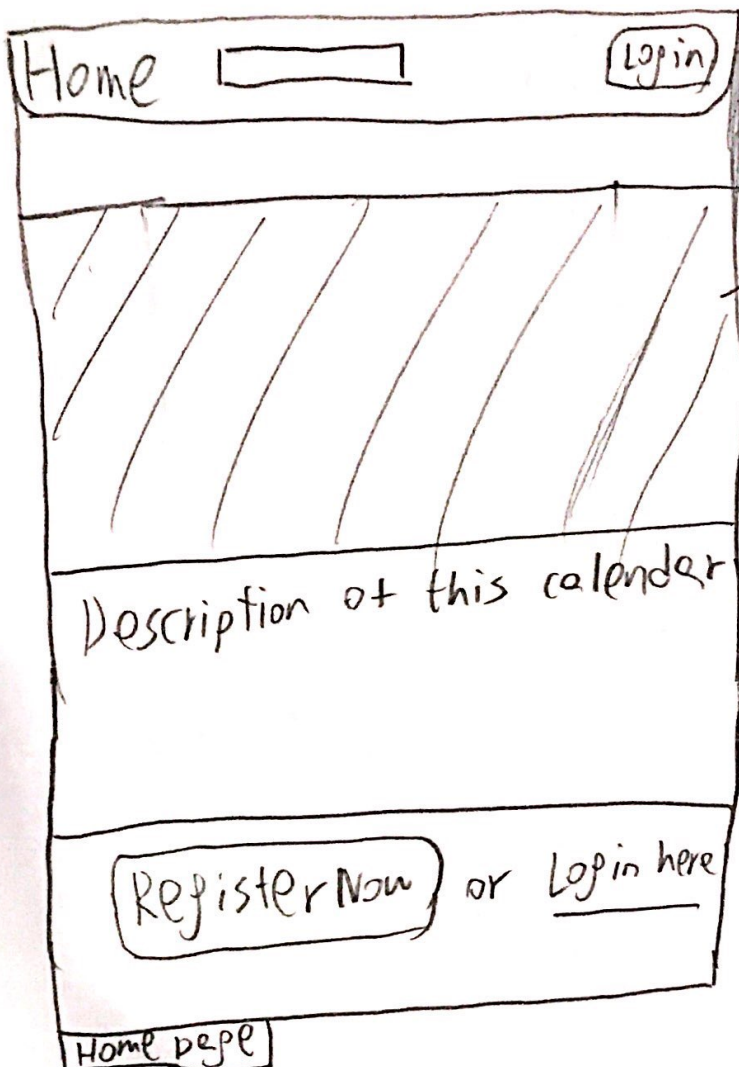 Home Login
Description of this calender
Register Now or Login here
Home page